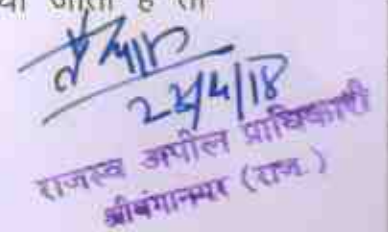 जाता है तो
23/4/18
राजस्व अपील प्राधिकारी
श्रीगंगानगर (राज.)